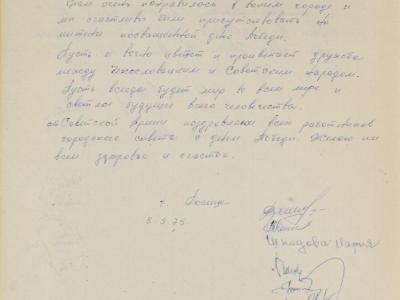 Нам очень понравилось в вашем городе и
мы счастливы были присутствовать на
митинге посвященной дню Победы.
Пусть и вечно цветет и процветает дружба
между Чехословацким и Советским народом.
Пусть всегда будет мир во всем мире и
светлое будущее всего человечества.
Советской Армии поздравляем всех работников
городского совета с днем Победы. Желаем им
всем здоровья и счастья.
г.
8.5.75.
Мария